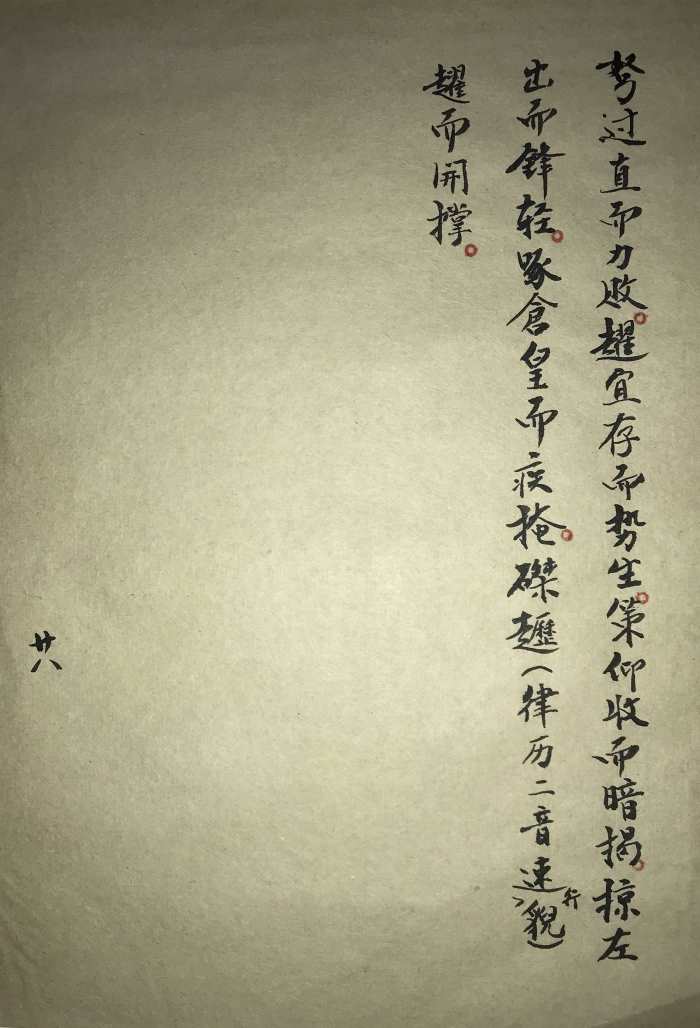 弩过直而力败。趯宜存而势生。策仰收而暗揭。掠左
出而锋轻。啄倉皇而疾掩。磔趩（律历二音速行貌）
趯而開撑。
廿八